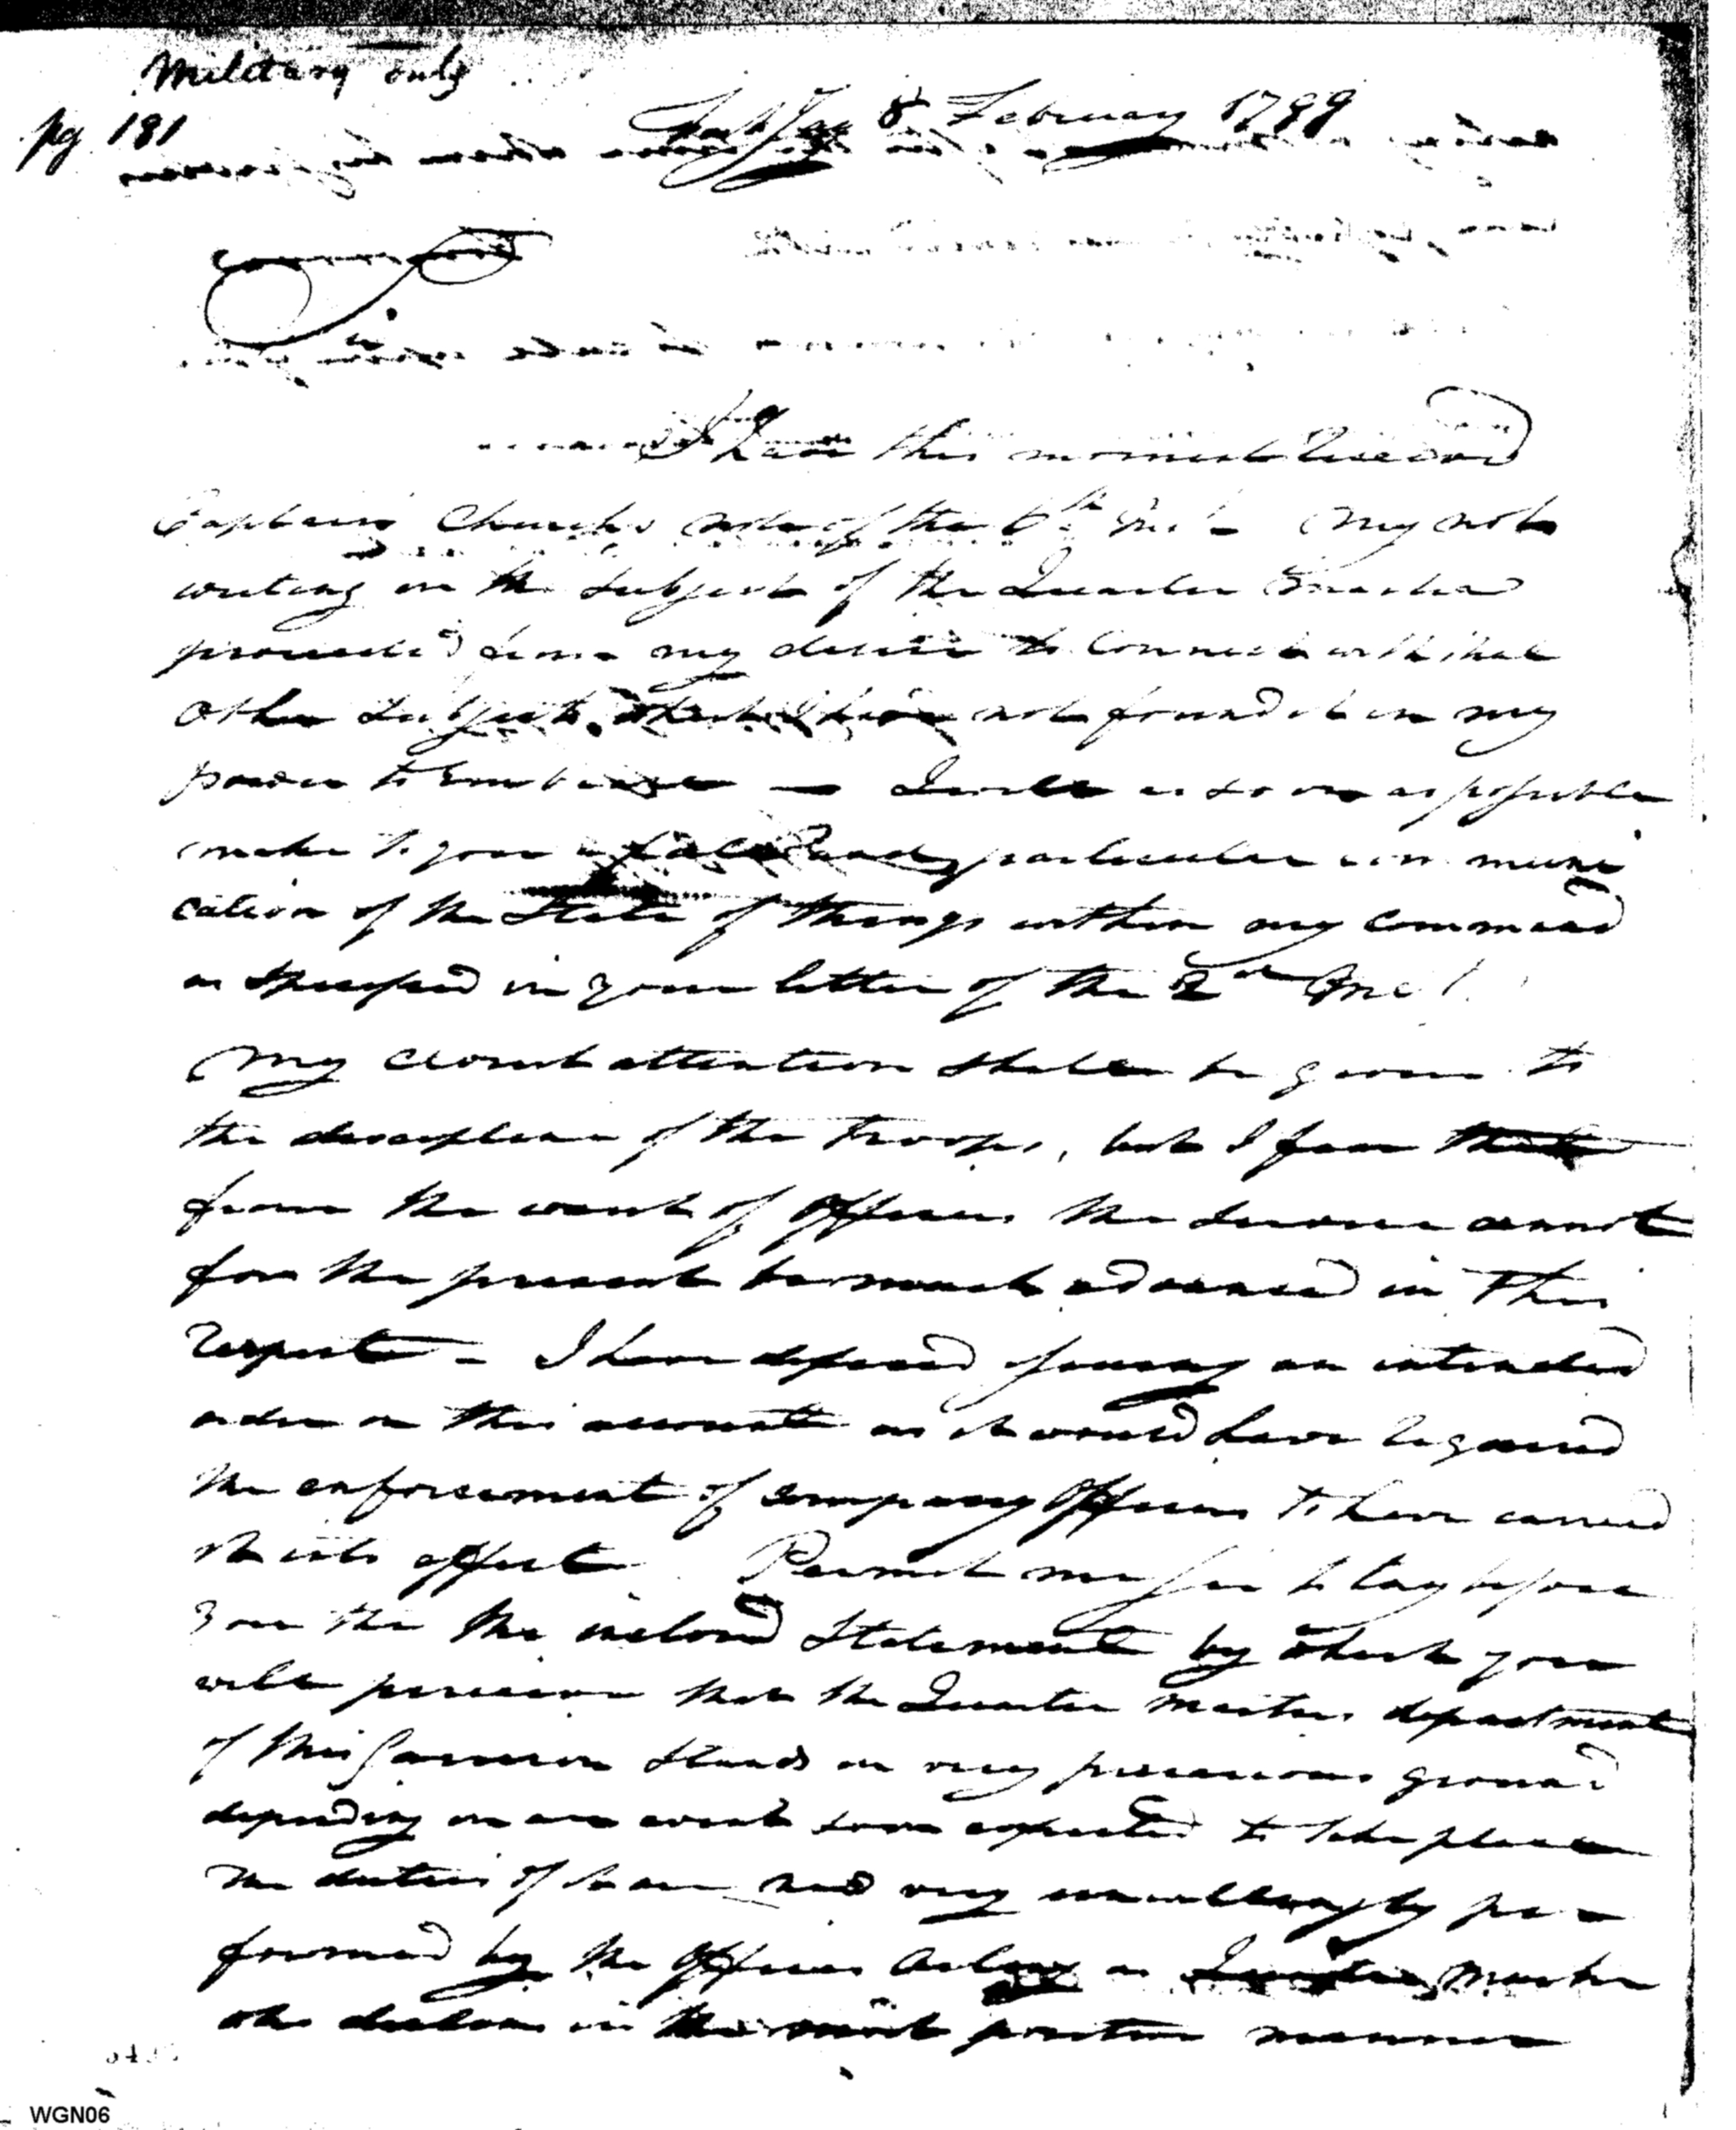 Military only
pg 181
Fort Jay 8 February 1799
Sir
I have this moment received
Captain Church's note of the 6th Inst. My not
writing on the subject of the Quarter Master
proceeded from my desire to connect with that
other subjects which I have not found it in my
power to embrace — I will as soon as possible
make to you a particular communi
cation of the State of things within my command
as specified in your letter of the 2d Inst.
My closest attention shall be given to
the discipline of the troops, but I fear that
from the want of Officers the service cannot
for the present be much advanced in this
respect — I have deferred issuing an intended
order on this account as it would have required
the enforcement of company Officers to have carried
it into effect. Permit me Sir to lay before
you the the inclosed Statement by which you
will perceive that the Quarter Masters department
of this Garrison stands on very precarious ground
depending on an event soon expected to take place
The duties of are very unwillingly per=
formed by the Officer Acting as Quarter Master
who declares in the most positive manner
WGN06